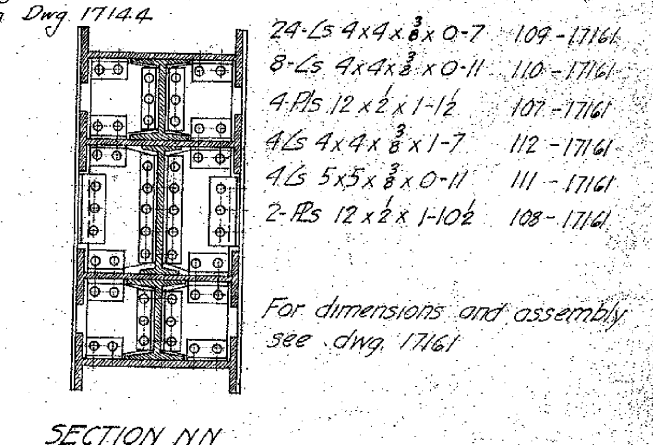 Dwg. 17144
24-Ls 4x4x3/8 x 0-7 109-17161
8-Ls 4x4x3/8 x 0-11 110-17161
4-Pls 12 x 1/2 x 1-1 1/2 107-17161
4 Ls 4x4x3/8 x 1-7 112-17161
4 Ls 5x5x3/8 x 0-11 111-17161
2-Pls 12 x 1/2 x 1-10 1/2 108-17161
For dimensions and assembly
see dwg. 17161
SECTION NN